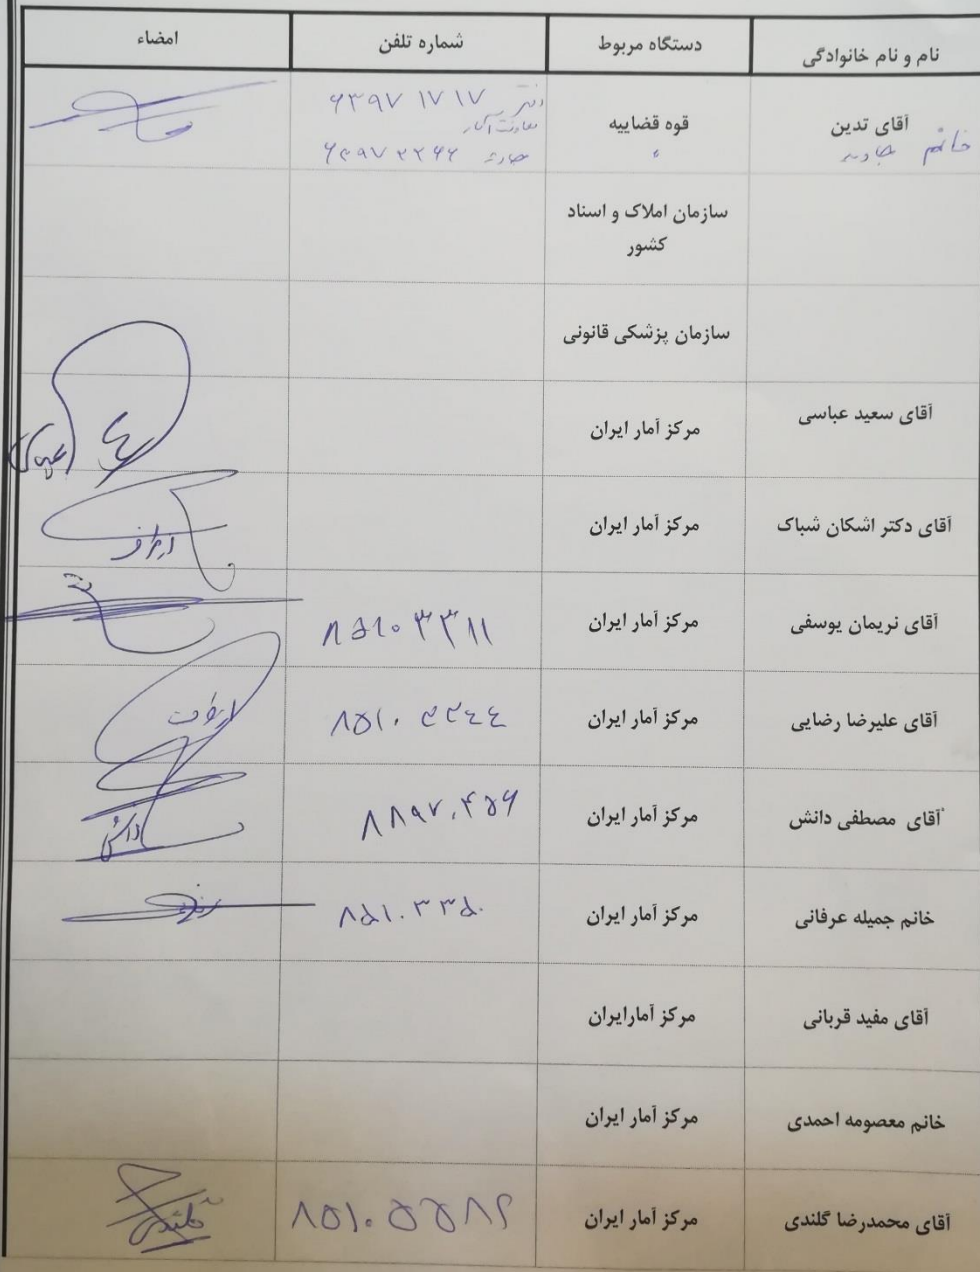 نام و نام خانوادگی	دستگاه مربوط	شماره تلفن	امضاء
آقای تدین	قوه قضاییه	دفتر ۶۳۹۷ ۱۷۱۷
خانم
معاونت آمار
سازمان املاک و اسناد
کشور
سازمان پزشکی قانونی
آقای سعید عباسی	مرکز آمار ایران
آقای دکتر اشکان شباک	مرکز آمار ایران
آقای نریمان یوسفی	مرکز آمار ایران	۸۵۱۰۳۳۱۱
آقای علیرضا رضایی	مرکز آمار ایران
آقای مصطفی دانش	مرکز آمار ایران	۸۸۹۷۰۴۵۶	دانش
خانم جمیله عرفانی	مرکز آمار ایران	۸۵۱۰۳۳۵۰
آقای مفید قربانی	مرکز آمارایران
خانم معصومه احمدی	مرکز آمار ایران
آقای محمدرضا گلندی	مرکز آمار ایران	گلندی